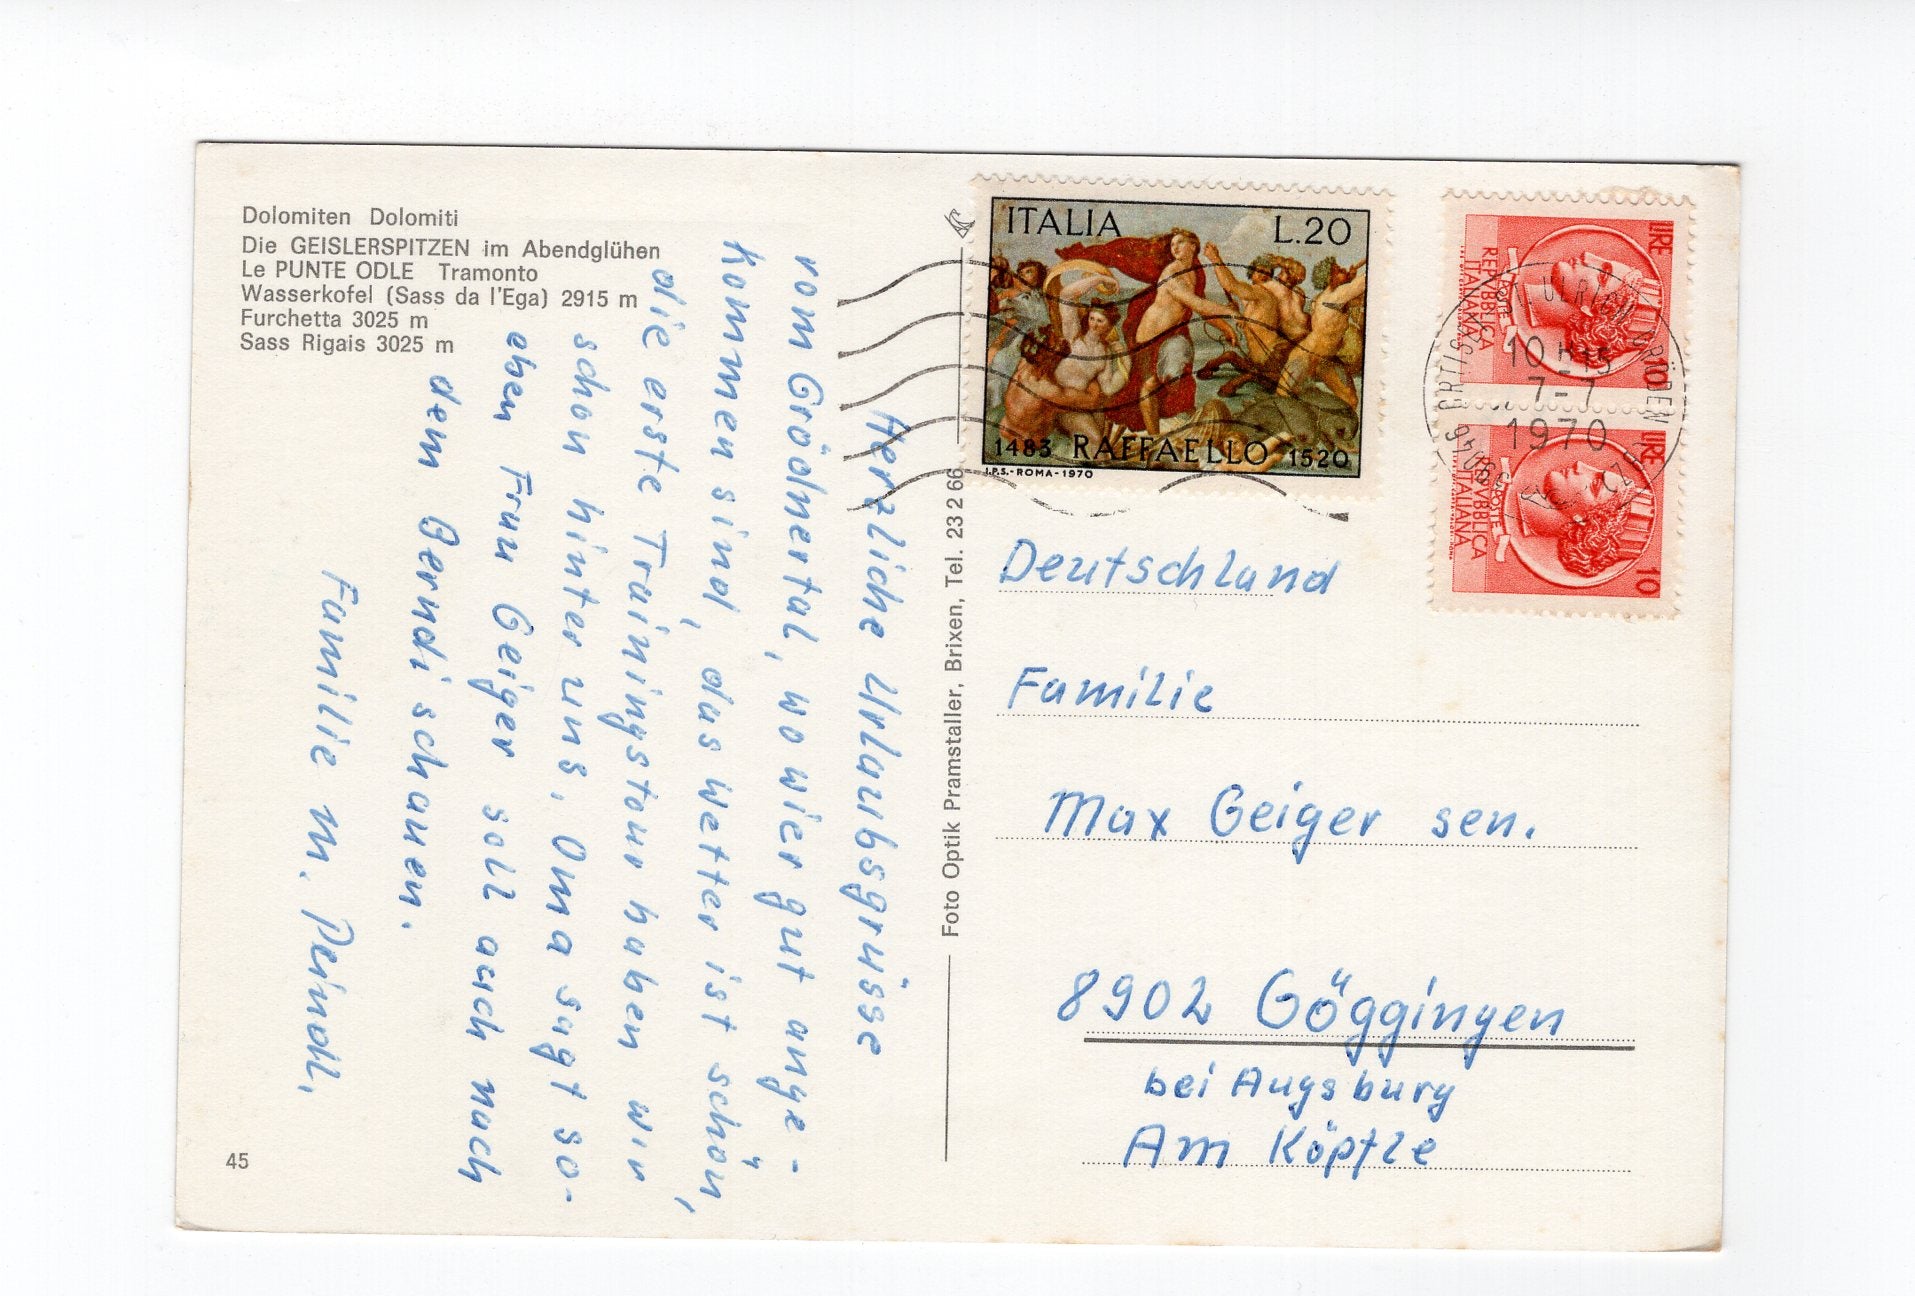 Dolomiten Dolomiti
Die GEISLERSPITZEN im Abendglühen
Le PUNTE ODLE Tramonto
Wasserkofel (Sass da l'Ega) 2915 m
Furchetta 3025 m
Sass Rigais 3025 m
Herzliche Urlaubsgrüsse
vom Grödnertal, wo wier gut ange-
kommen sind, das Wetter ist schön,
die erste Trainingstour haben wir
schon hinter uns, Oma sagt so-
eben Frau Geiger soll auch nach
dem Berndi schauen.
Familie M. Deindl.
45
Foto Optik Pramstaller, Brixen, Tel. 23 2 66
ITALIA L.20
1483 RAFFAELLO 1520
I.P.S.-ROMA-1970
LIRE 10
REPVBBLICA
ITALIANA
POSTE
LIRE 10
REPVBBLICA
ITALIANA
POSTE
39046 ORTISEI ULRICH GRÖDEN (BZ)
10 H15
7-7
1970
Deutschland
Familie
Max Geiger sen.
8902 Göggingen
bei Augsburg
Am Köpfle